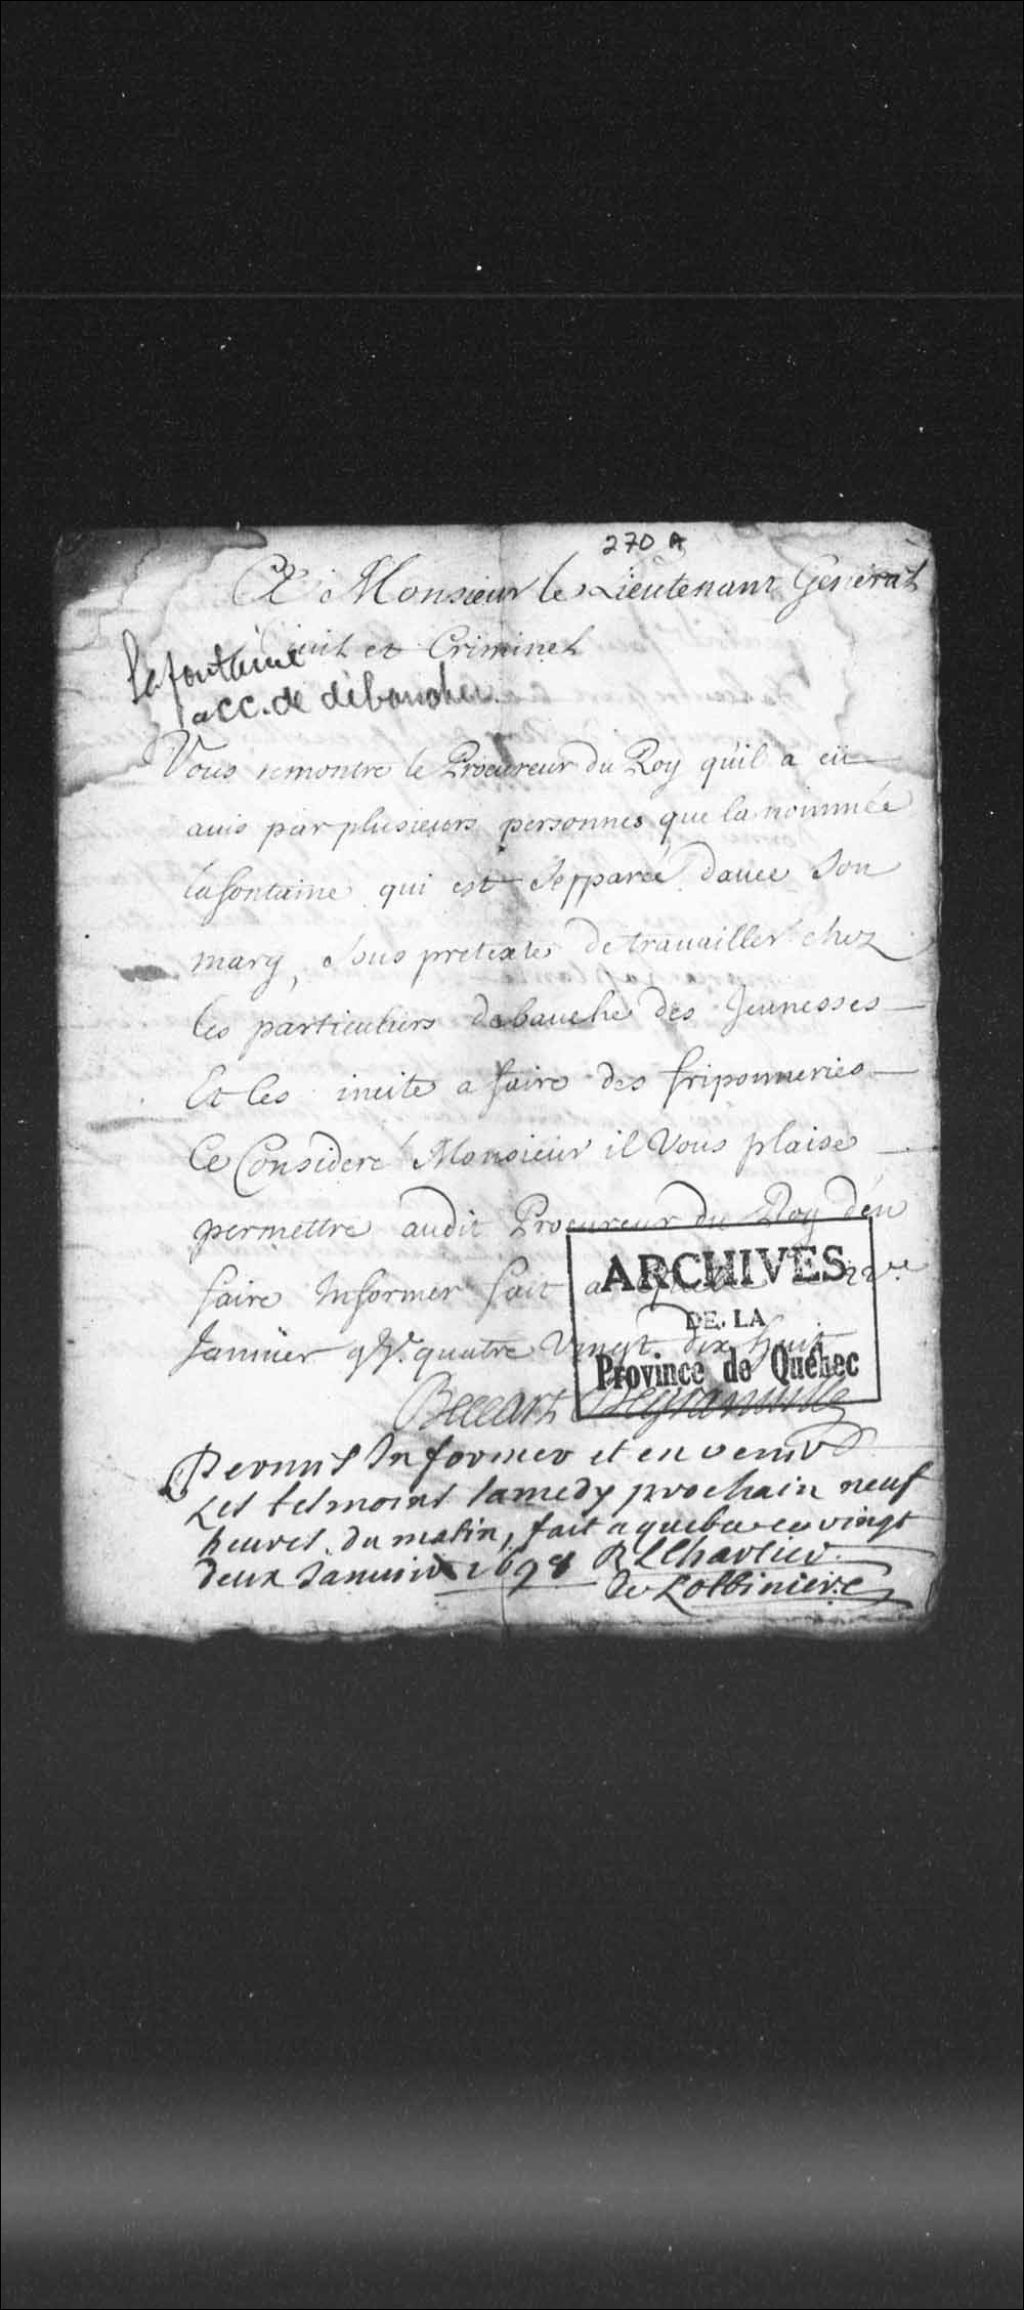 270 A
A Monsieur le Lieutenant General
Civil et Criminel
Lafontaine
acc. de débaucher.
Vous remontre le Procureur du Roy quil a eü
auis par plusieurs personnes que la nommée
lafontaine qui est Sepparée dauec Son
mary, Sous pretexte de trauailler chez
les particuliers debauche des Jeunesses
Et les incite a faire des friponneries
Ce Consideré Monsieur il Vous plaise
permettre audit Procureur du Roy d'en
faire Informer fait a 22.e
Januier quatre Vingt dix huit
ARCHIVES
DE LA
Province de Québec
Becart
Permis Informer et en venir
les tesmoins samedy prochain neuf
heures du matin, fait a quebec ce vingt
deux Januier 1698 R L Chartier
De Lotbiniere